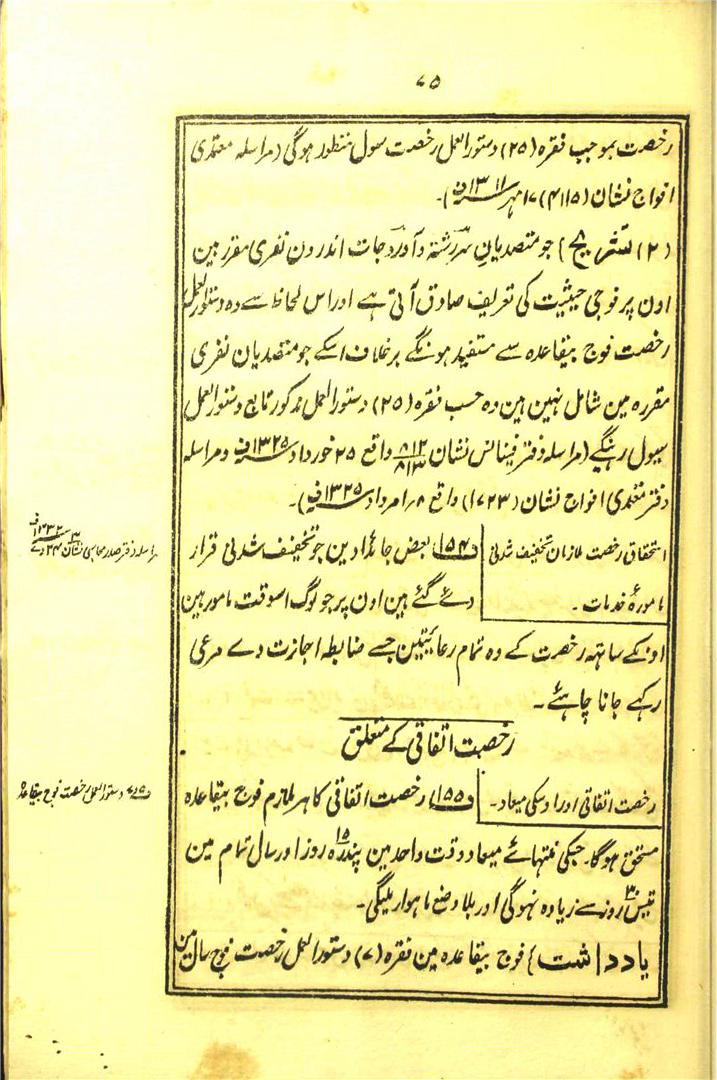 ۷۵
رخصت بموجب فقرہ (۲۵) دستورالعمل رخصت سول منظور ہوگی (مراسلہ معتمدی
افواج نشان (۴۱۱۵) ۱۷ مہر سنہ ۱۳۱۱ف)۔
(۲) تشریح} جو متصدیان سررشتہ و آوردجات اندرون نفری مقرر ہین
اون پر فوجی حیثیت کی تعریف صادق آتی ہے اور اس لحاظ سے وہ دستورالعمل
رخصت فوج بیقاعدہ سے مستفید ہونگے برخلاف اسکے جو متصدیان نفری
مقررہ مین شامل نہین ہین وہ حسب فقرہ (۲۵) دستورالعمل مذکور تابع دستورالعمل
سیول رہینگے (مراسلہ دفتر فینانس نشان ۸۱۲/۸۱۳ واقع ۲۵ خورداد سنہ ۱۳۲۵ف و مراسلہ
دفتر معتمدی افواج نشان (۱۷۲۳) واقع ۸؍ امرداد سنہ ۱۳۲۵ف)۔
استحقاقی رخصت ملازمان تخفیف شدنی
مامورۂ خدمات۔
دفعہ ۱۵۴} بعض جائدادین جو تخفیف شدنی قرار
دئے گئے ہین اون پر جو لوگ اسوقت مامور ہین
مراسلہ دفتر صدر محاسبی نشان
اونکے ساتھہ رخصت کے وہ تمام رعائیتین جسے ضابطہ اجازت دے مرعی
رکہے جانا چاہئے۔
رخصت اتفاقی کے متعلق
رخصت اتفاقی اور اوسکی میعاد۔
دفعہ ۱۵۵} رخصت اتفاقی کا ہر ملازم فوج بیقاعدہ
دستورالعمل رخصت فوج بیقاعدہ
مستحق ہوگا۔ جبکی منتہائے میعاد وقت واحد مین پندرہ ۱۵ روز اور سال تمام مین
تیس ۳۰ روز سے زیادہ نہوگی اور بلا وضع ماہوار ملیگی۔
یادداشت} فوج بیقاعدہ مین فقرہ (۷) دستورالعمل رخصت فوج سال مین